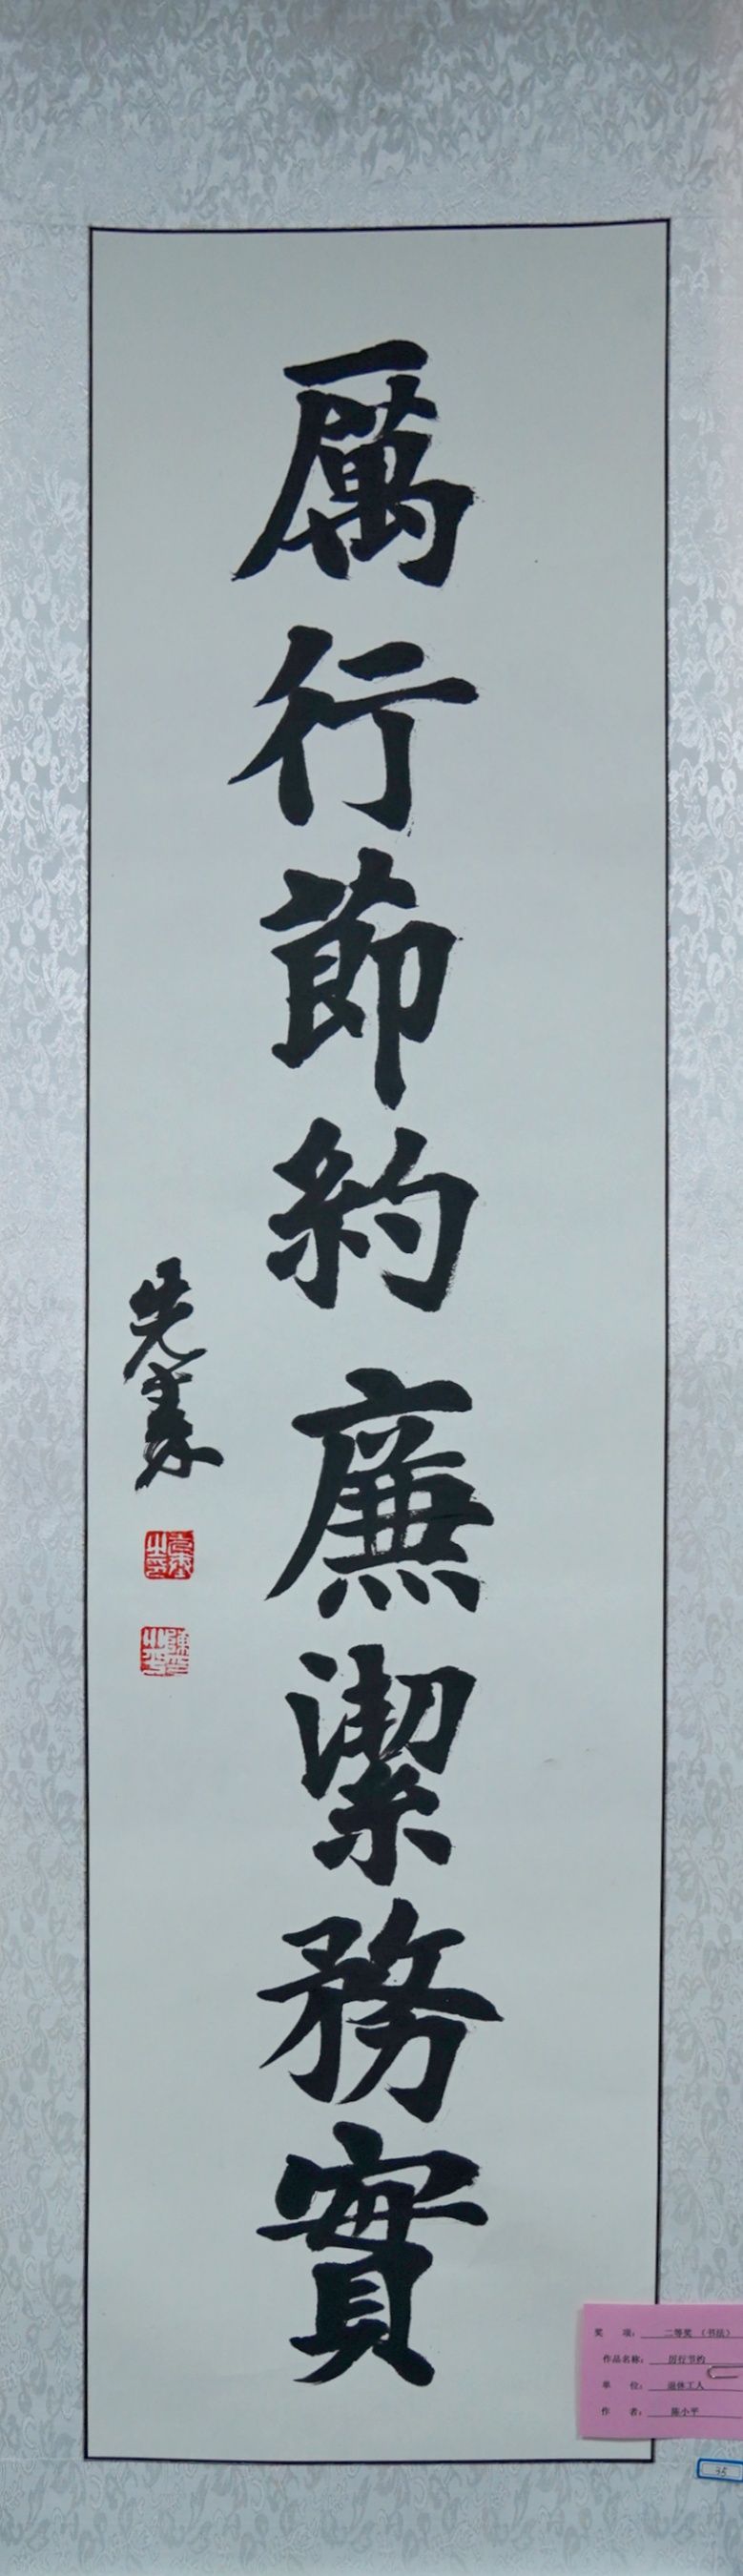 厲行節約廉潔務實
奖 项： 二等奖（书法）
作品名称： 厉行节约
单 位： 退休工人
作 者： 陈小平
35